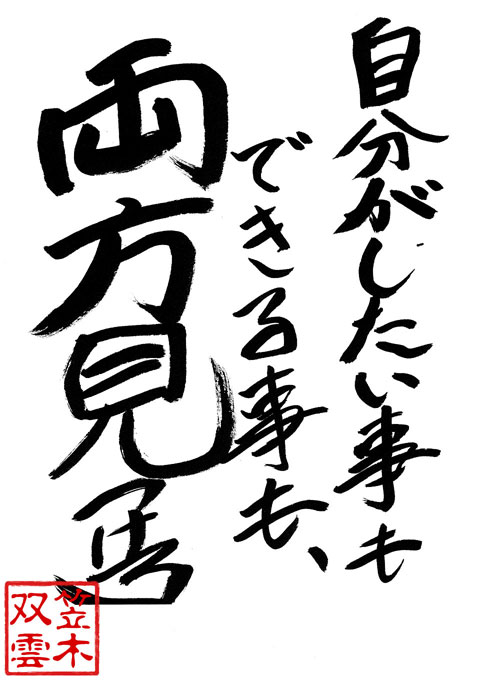 自分がしたい事も
できる事も、
両方見
笠木
双雲